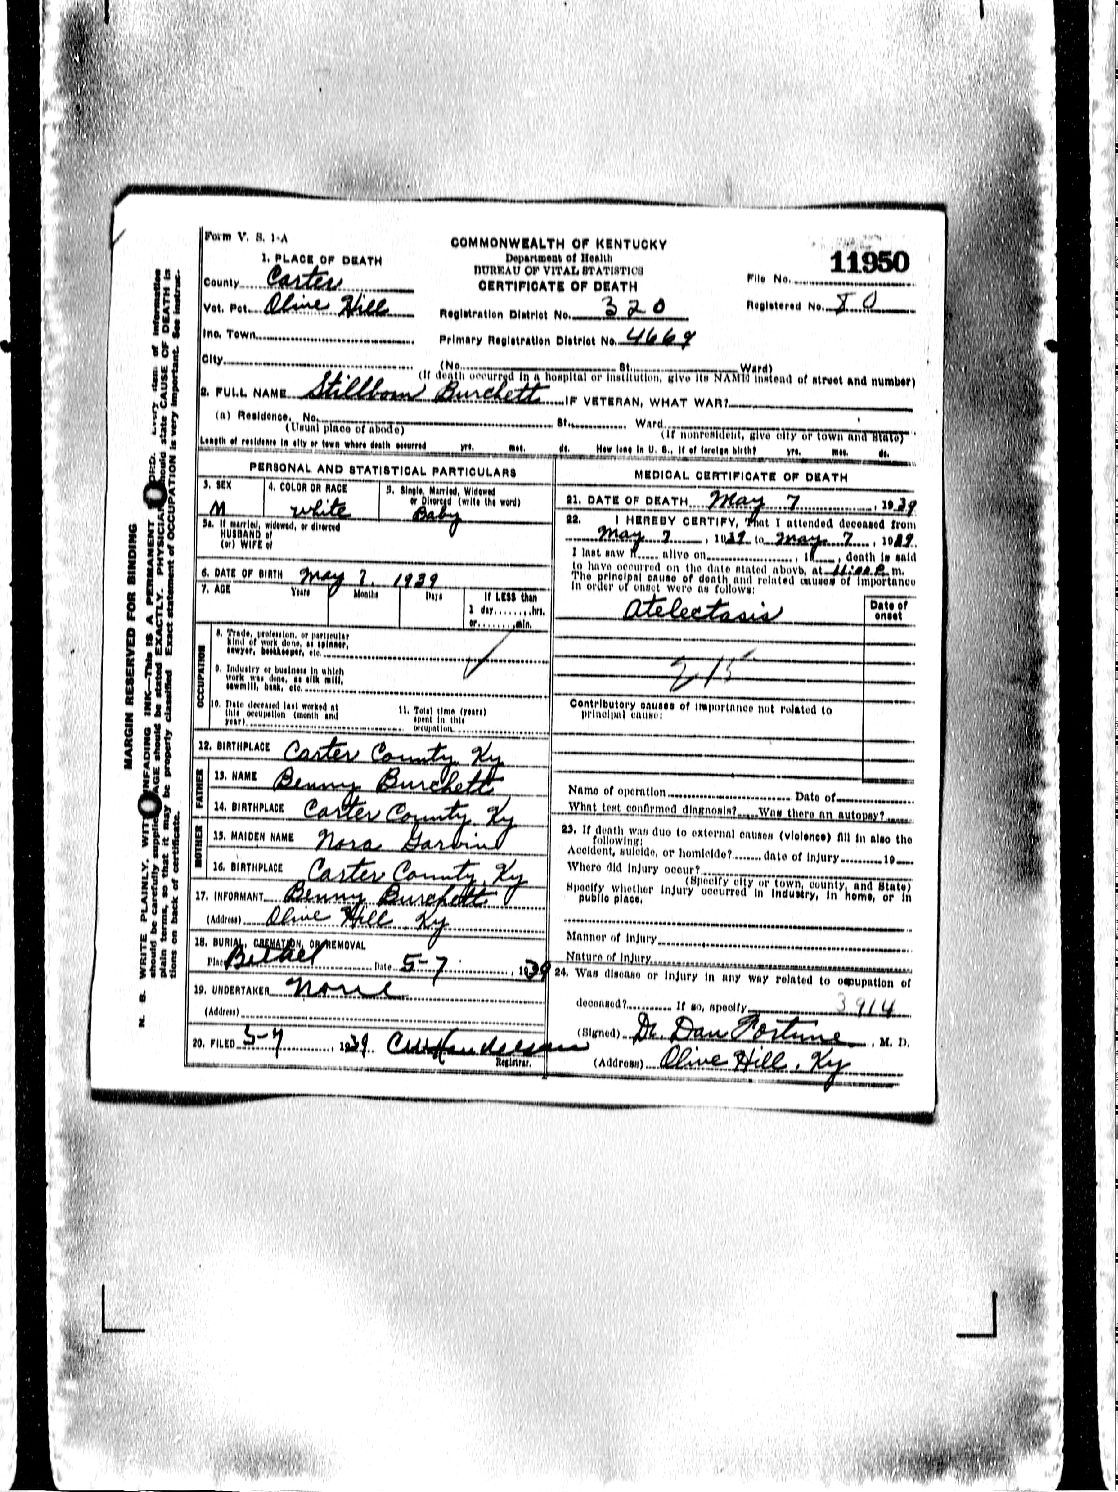 Form V. S. 1-A
COMMONWEALTH OF KENTUCKY
Department of Health
BUREAU OF VITAL STATISTICS
CERTIFICATE OF DEATH
11950
File No.
Registered No. 80
1. PLACE OF DEATH
County Carter
Vot. Pct. Olive Hill
Registration District No. 320
Inc. Town
Primary Registration District No. 4669
City (No. St. Ward)
(If death occurred in a hospital or institution, give its NAME instead of street and number)
2. FULL NAME Stillborn Burchett IF VETERAN, WHAT WAR?
(a) Residence. No. St. Ward
(Usual place of abode) (If nonresident, give city or town and State)
Length of residence in city or town where death occurred yrs. mos. ds. How long in U. S., if of foreign birth? yrs. mos. ds.
PERSONAL AND STATISTICAL PARTICULARS
3. SEX
M
4. COLOR OR RACE
white
5. Single, Married, Widowed
or Divorced (write the word)
Baby
5a. If married, widowed, or divorced
HUSBAND of
(or) WIFE of
6. DATE OF BIRTH May 7. 1939
7. AGE Years Months Days If LESS than
1 day,.......hrs.
or.......min.
OCCUPATION
8. Trade, profession, or particular
kind of work done, as spinner,
sawyer, bookkeeper, etc.
9. Industry or business in which
work was done, as silk mill,
sawmill, bank, etc.
10. Date deceased last worked at
this occupation (month and
year)
11. Total time (years)
spent in this
occupation
12. BIRTHPLACE Carter County Ky
FATHER
13. NAME Benny Burchett
14. BIRTHPLACE Carter County. Ky
MOTHER
15. MAIDEN NAME Nora
16. BIRTHPLACE Carter County. Ky
17. INFORMANT Benny Burchett
(Address) Olive Hill. Ky
18. BURIAL, CREMATION, OR REMOVAL
Place Bethel Date 5-7, 1939
19. UNDERTAKER None
(Address)
20. FILED 5-7, 1939
Registrar.
MEDICAL CERTIFICATE OF DEATH
21. DATE OF DEATH May 7, 1939
22. I HEREBY CERTIFY, That I attended deceased from
May 7, 1939 to May 7, 1939
I last saw h alive on, 1, death is said
to have occurred on the date stated above, at m.
The principal cause of death and related causes of importance
in order of onset were as follows:
Date of
onset
Atelectasis
215
Contributory causes of importance not related to
principal cause:
Name of operation Date of
What test confirmed diagnosis? Was there an autopsy?
23. If death was due to external causes (violence) fill in also the
following:
Accident, suicide, or homicide? date of injury 19
Where did injury occur?
(Specify city or town, county, and State)
Specify whether injury occurred in industry, in home, or in
public place.
Manner of injury
Nature of injury
24. Was disease or injury in any way related to occupation of
deceased? If so, specify
3914
(Signed) Dr Dan Fortune, M. D.
(Address) Olive Hill. Ky
MARGIN RESERVED FOR BINDING
N. B. WRITE PLAINLY, WITH UNFADING INK—THIS IS A PERMANENT RECORD. Every item of information
should be carefully supplied. AGE should be stated EXACTLY. PHYSICIANS should state CAUSE OF DEATH in
plain terms, so that it may be properly classified. Exact statement of OCCUPATION is very important. See instruc-
tions on back of certificate.